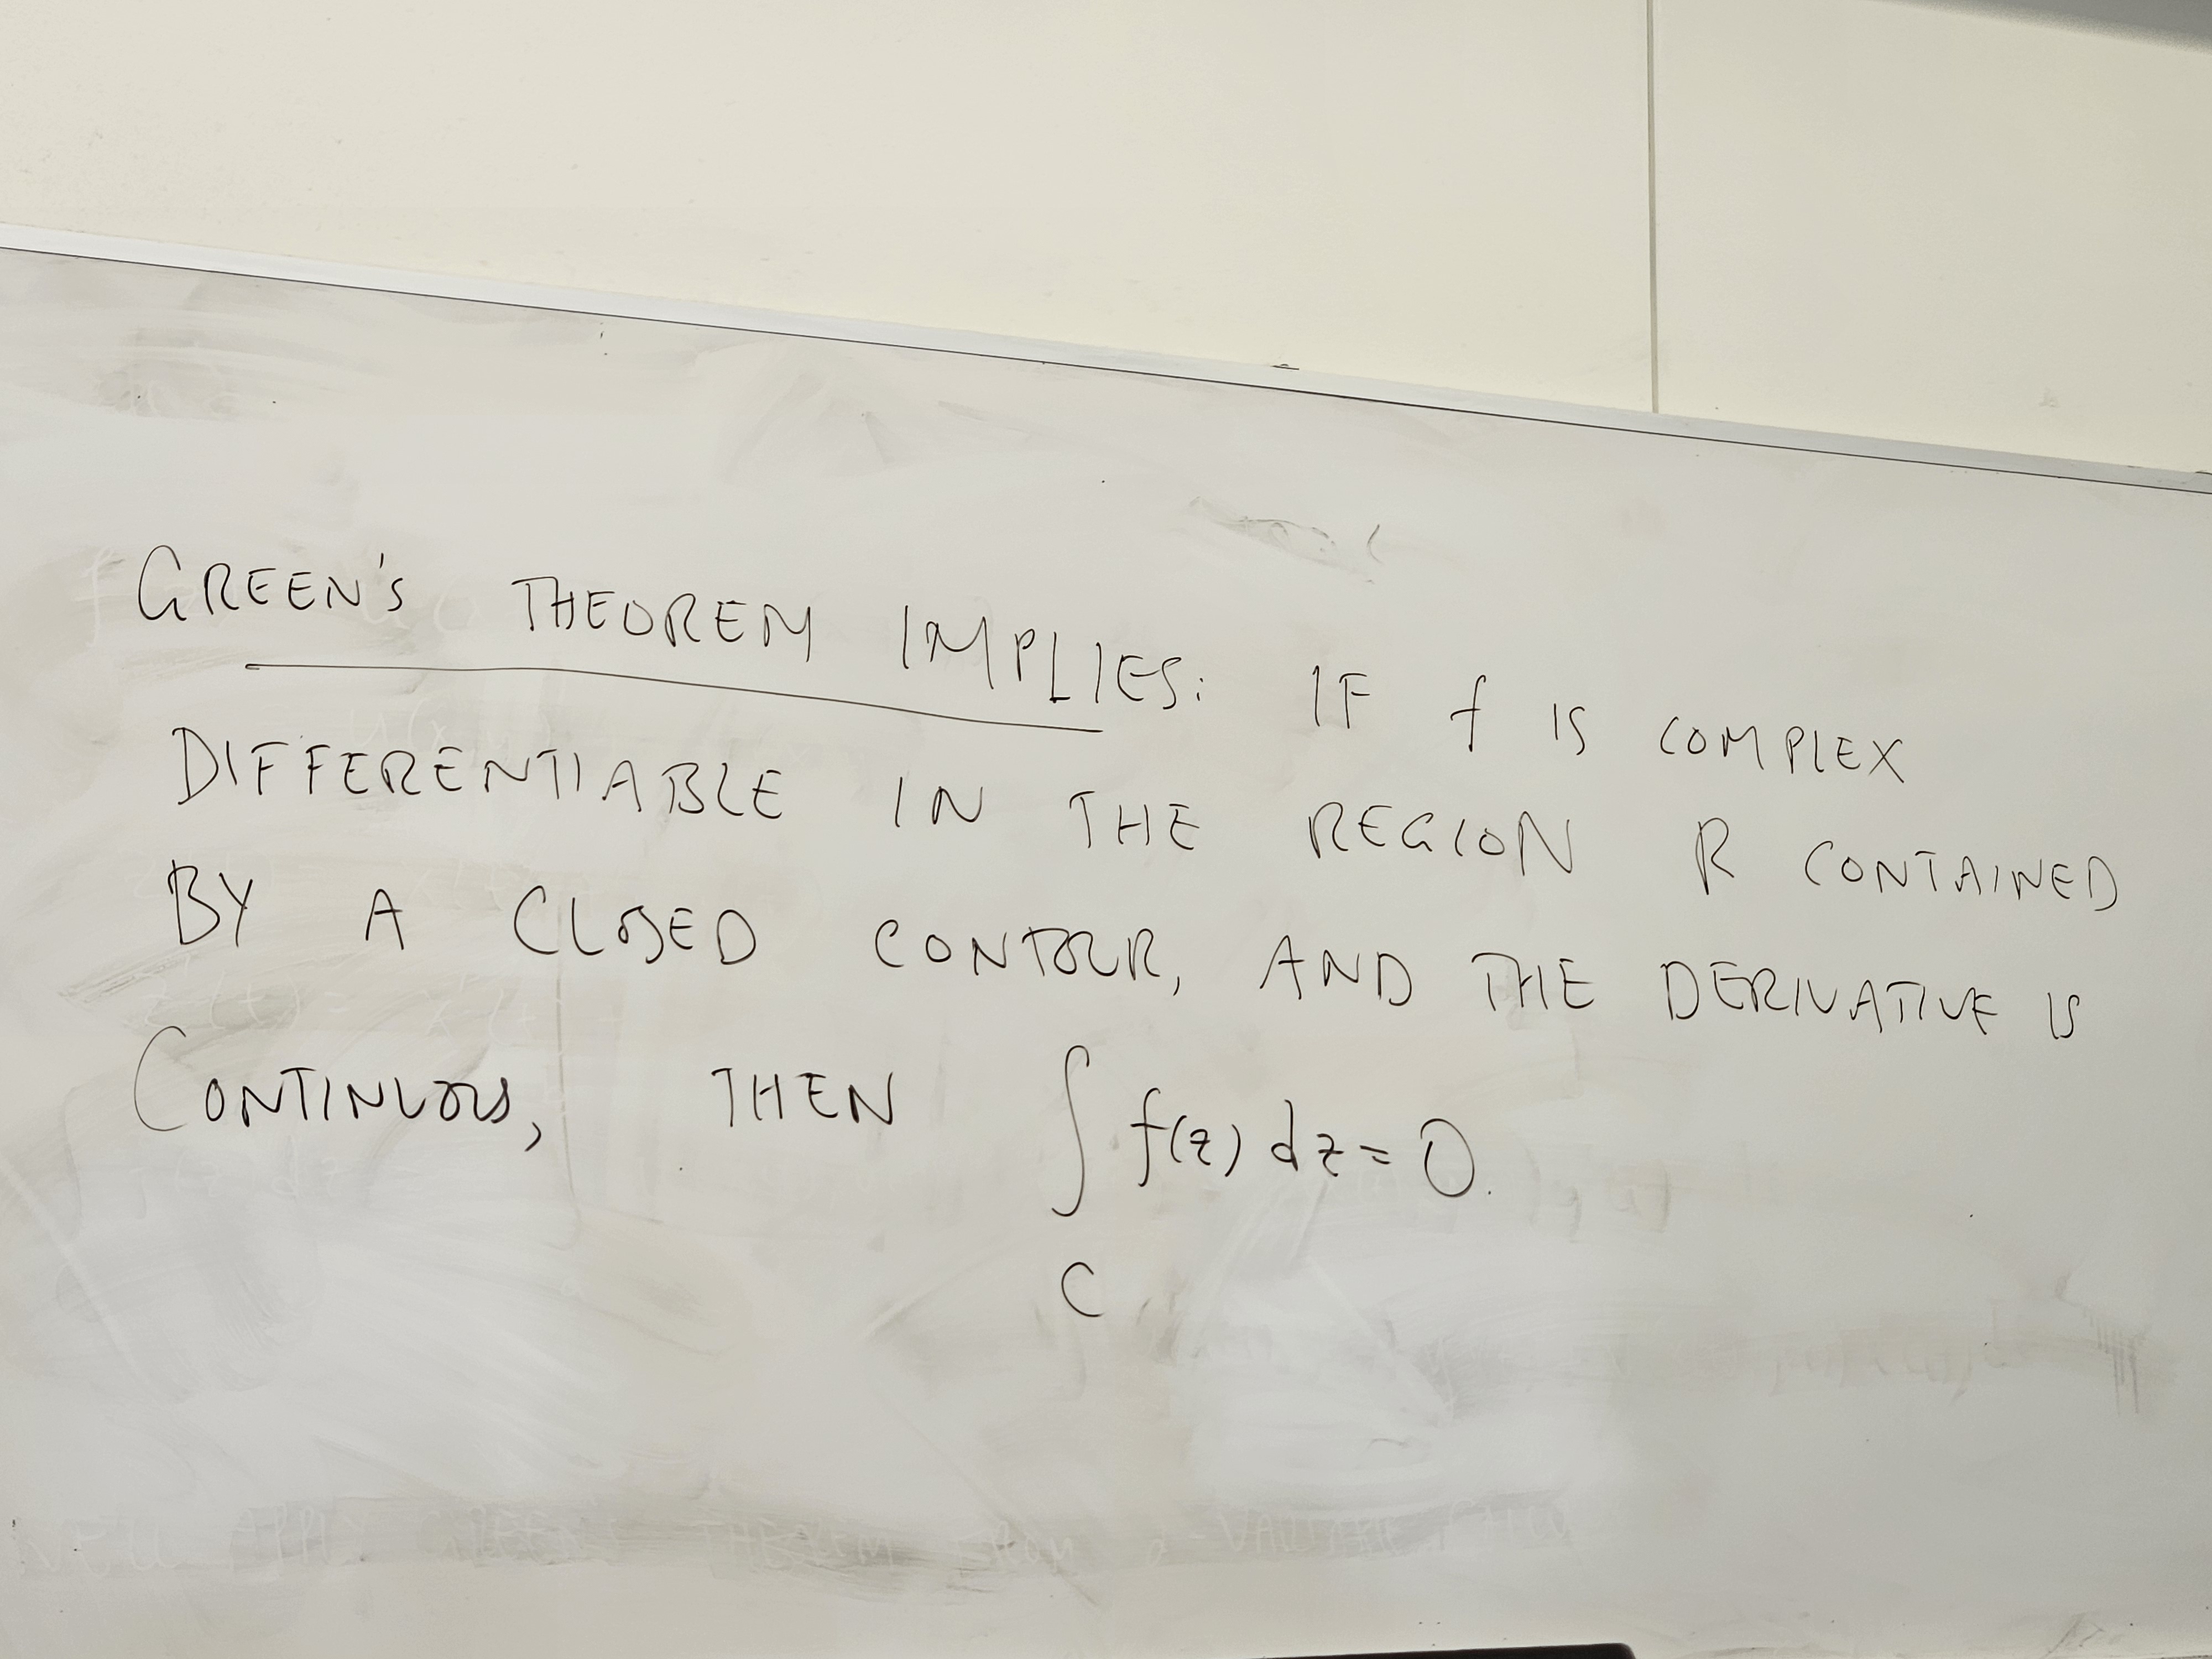 GREEN'S THEOREM IMPLIES: IF f IS COMPLEX
DIFFERENTIABLE IN THE REGION R CONTAINED
BY A CLOSED CONTOUR, AND THE DERIVATIVE IS
CONTINUOUS, THEN ∫ f(z) dz = 0.
C